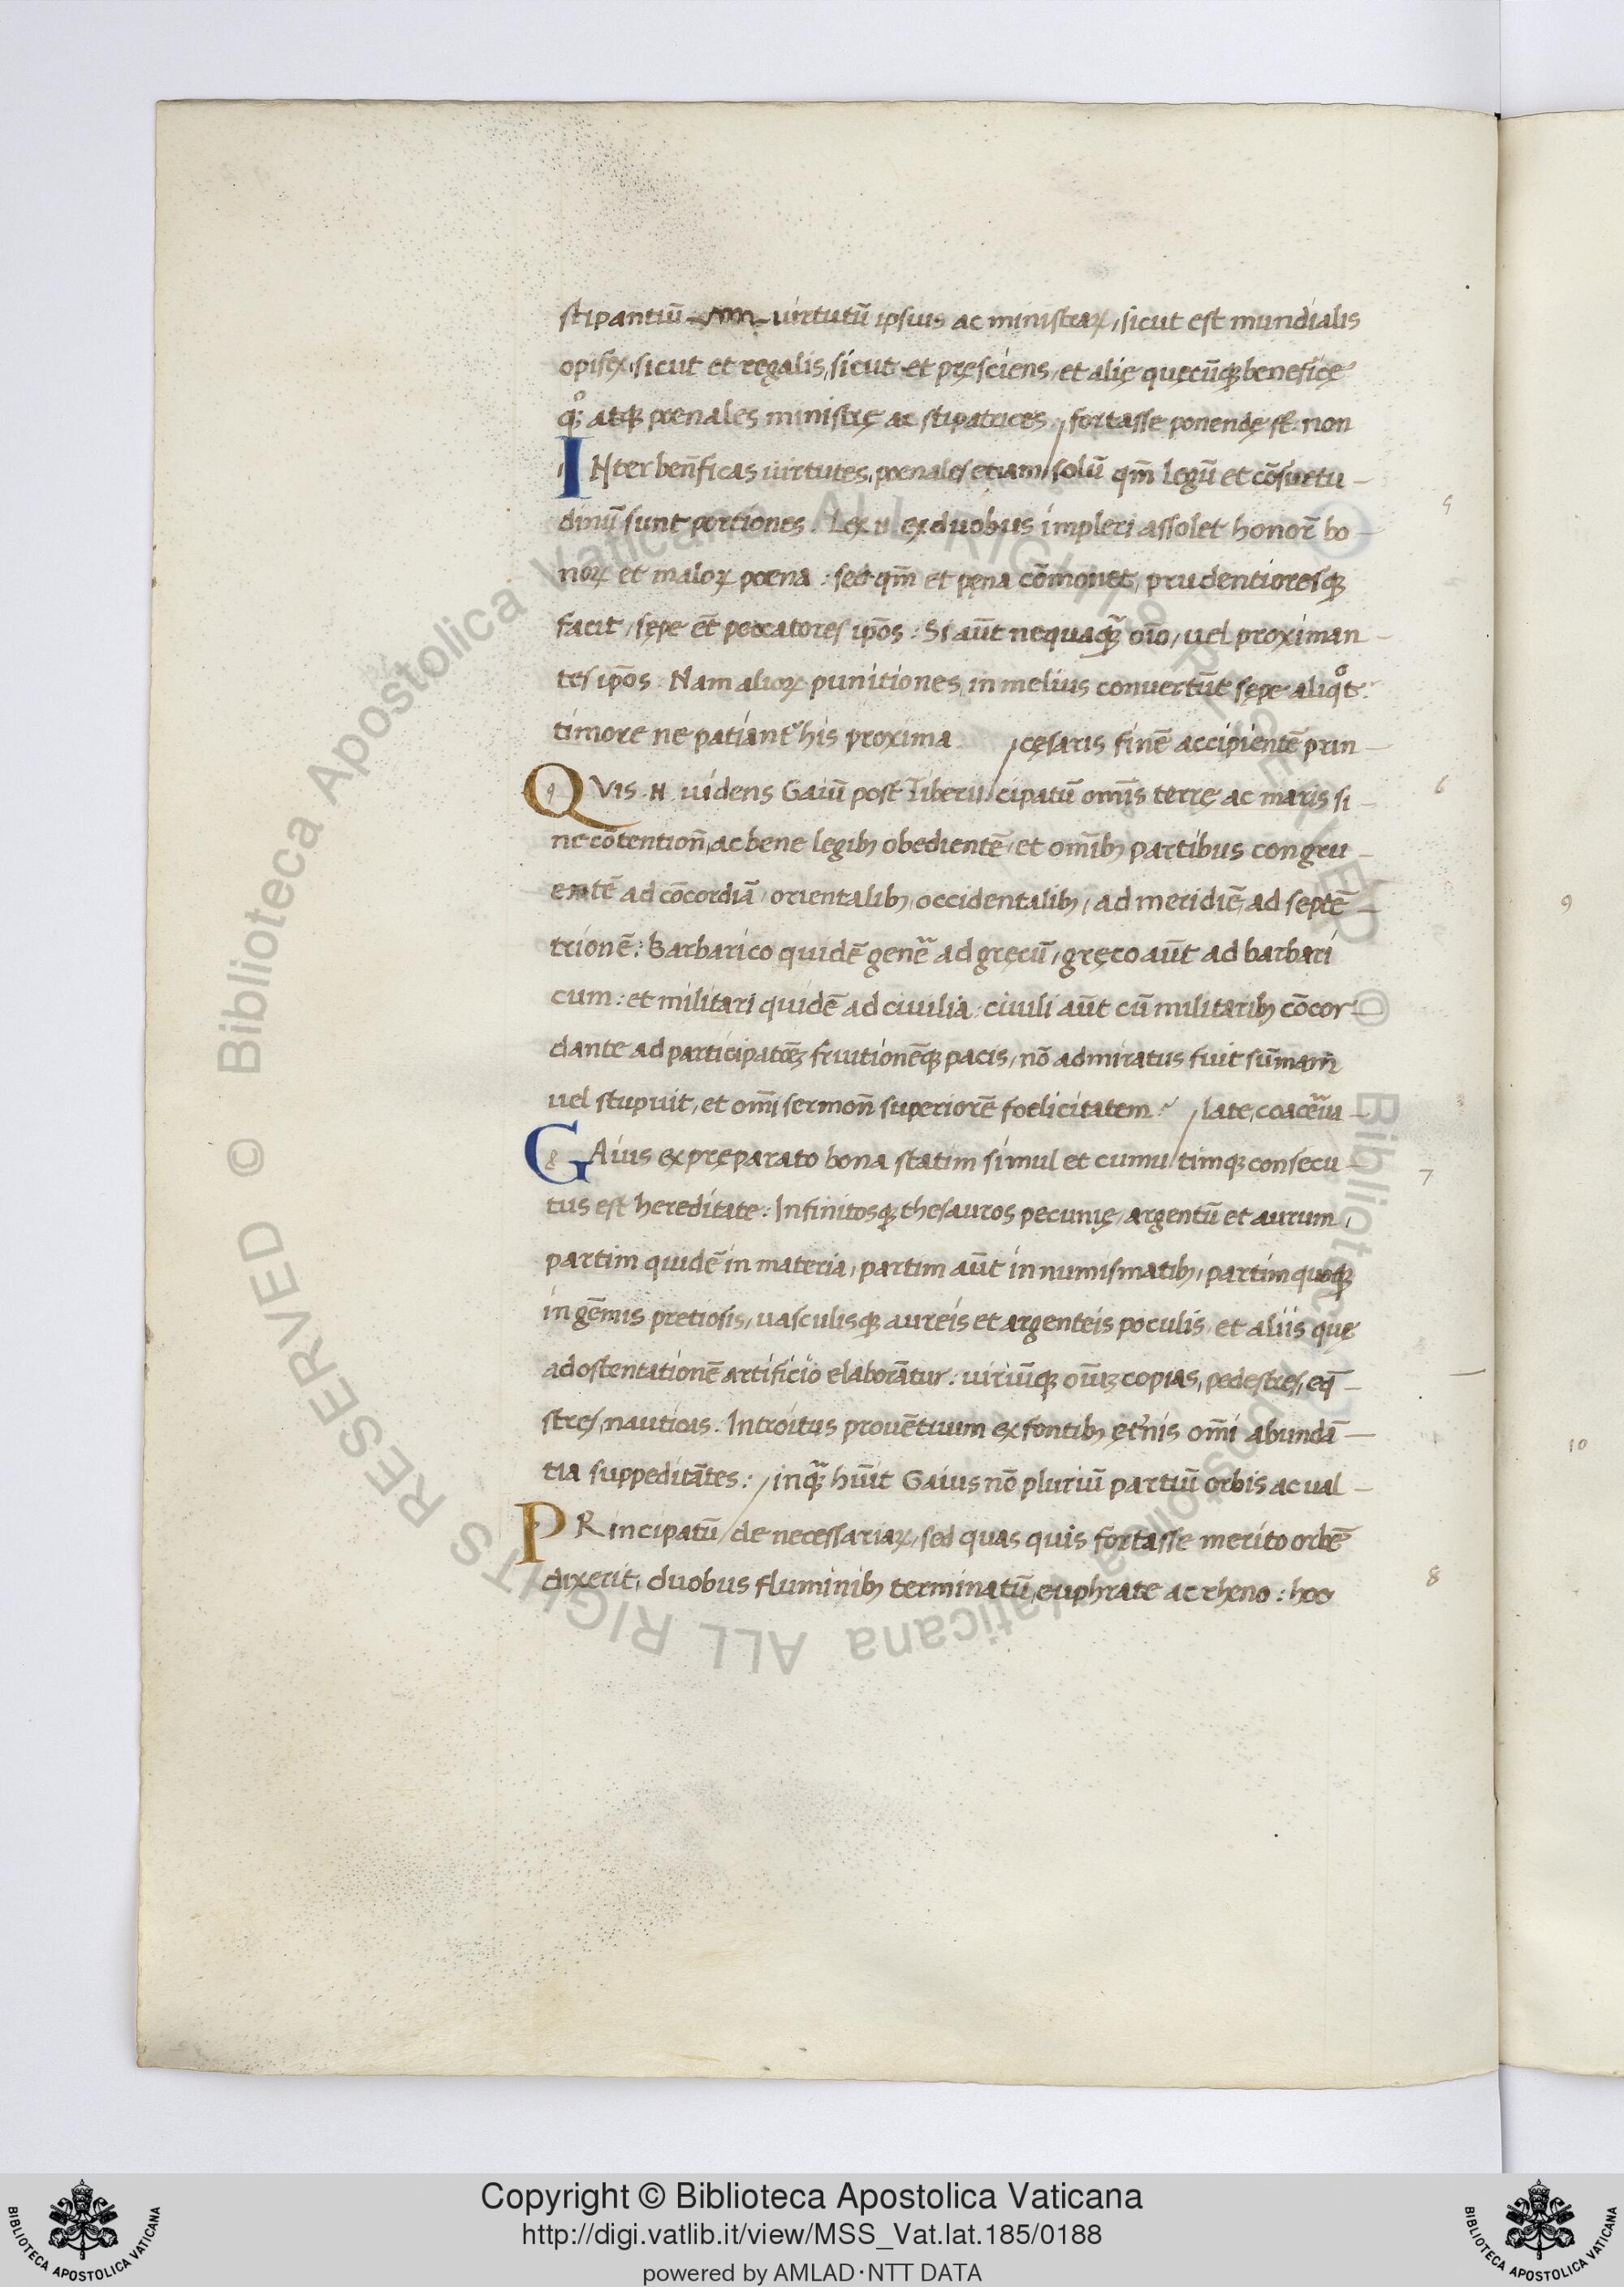 stipantiũ non uirtutũ ipsius ac ministraꝝ, sicut est mundialis
opifex, sicut et regalis, sicut et pręsciens, et alię quęcũqꝫ beneficę
atqꝫ poenales ministrę ac stipatrices, fortasse ponendę st̃. non
INter beñficas uirtutes, poenales etiam solũ qm̃ legũ et cõsuetu-
dinũ sunt portiones. Lex .n. ex duobus impleri assolet honor̃ bo-
noꝝ et maloꝝ poena: sed qm̃ et pęna cõmonet, prudentioresqꝫ
facit, sępe et̃ peccatores ip̃os: Si aũt nequaq̃ oĩo, uel proximan-
tes ip̃os. Nam alioꝝ punitiones, in melius conuertũt sępe aliqͦt.
timore ne patiant᷑ his proxima cęsaris finẽ accipientẽ prin-
QVIS .N. uidens Gaiũ post Tiberii cipatũ omĩs terrę ac maris si-
ne cõtentioñ, ac bene legibꝫ obedientẽ, et om̃ibꝫ partibus congru-
entẽ ad cõcordiã, orientalibꝫ, occidentalibꝫ, ad meridiẽ, ad septẽ-
trionẽ: Barbarico quidẽ geñe ad gręcũ, gręco aũt ad barbari
cum: et militari quidẽ ad ciuilia, ciuili aũt cũ militaribꝫ cõcor-
dante ad participatõeꝫ fruitionẽqꝫ pacis, nõ admiratus fuit sũmam
uel stupuit, et om̃i sermoñ superiorẽ foelicitatem: late, coaceũa-
GAius ex pręparato bona statim simul et cumu timqꝫ consecu-
tus est hereditate: Infinitosqꝫ thesauros pecunię, argentũ et aurum,
partim quidẽ in materia, partim aũt in numismatibꝫ, partim quoqꝫ
in gẽmis pretiosis, uasculisqꝫ aureis et argenteis poculis, et aliis quę
ad ostentationẽ artificio elaborãtur: uiriũqꝫ oĩuꝫ copias, pedestres, eq̃-
stres, nauticas. Introitus prouẽtuum ex fontibꝫ ęt᷑nis om̃i abundã-
tia suppeditãtes: inq̃ hũit Gaius nõ pluriũ partiũ orbis ac ual-
PRincipatũ de necessariaꝝ, sed quas quis fortasse merito orbẽ
dixerit, duobus fluminibꝫ terminatũ, euphrate ac rheno: hoc
5
6
7
8
9
10
© Biblioteca Apostolica Vaticana ALL RIGHTS RESERVED
© Biblioteca Apostolica Vaticana ALL RIGHTS RESERVED
Copyright © Biblioteca Apostolica Vaticana
http://digi.vatlib.it/view/MSS_Vat.lat.185/0188
powered by AMLAD·NTT DATA
BIBLIOTECA APOSTOLICA VATICANA
BIBLIOTECA APOSTOLICA VATICANA